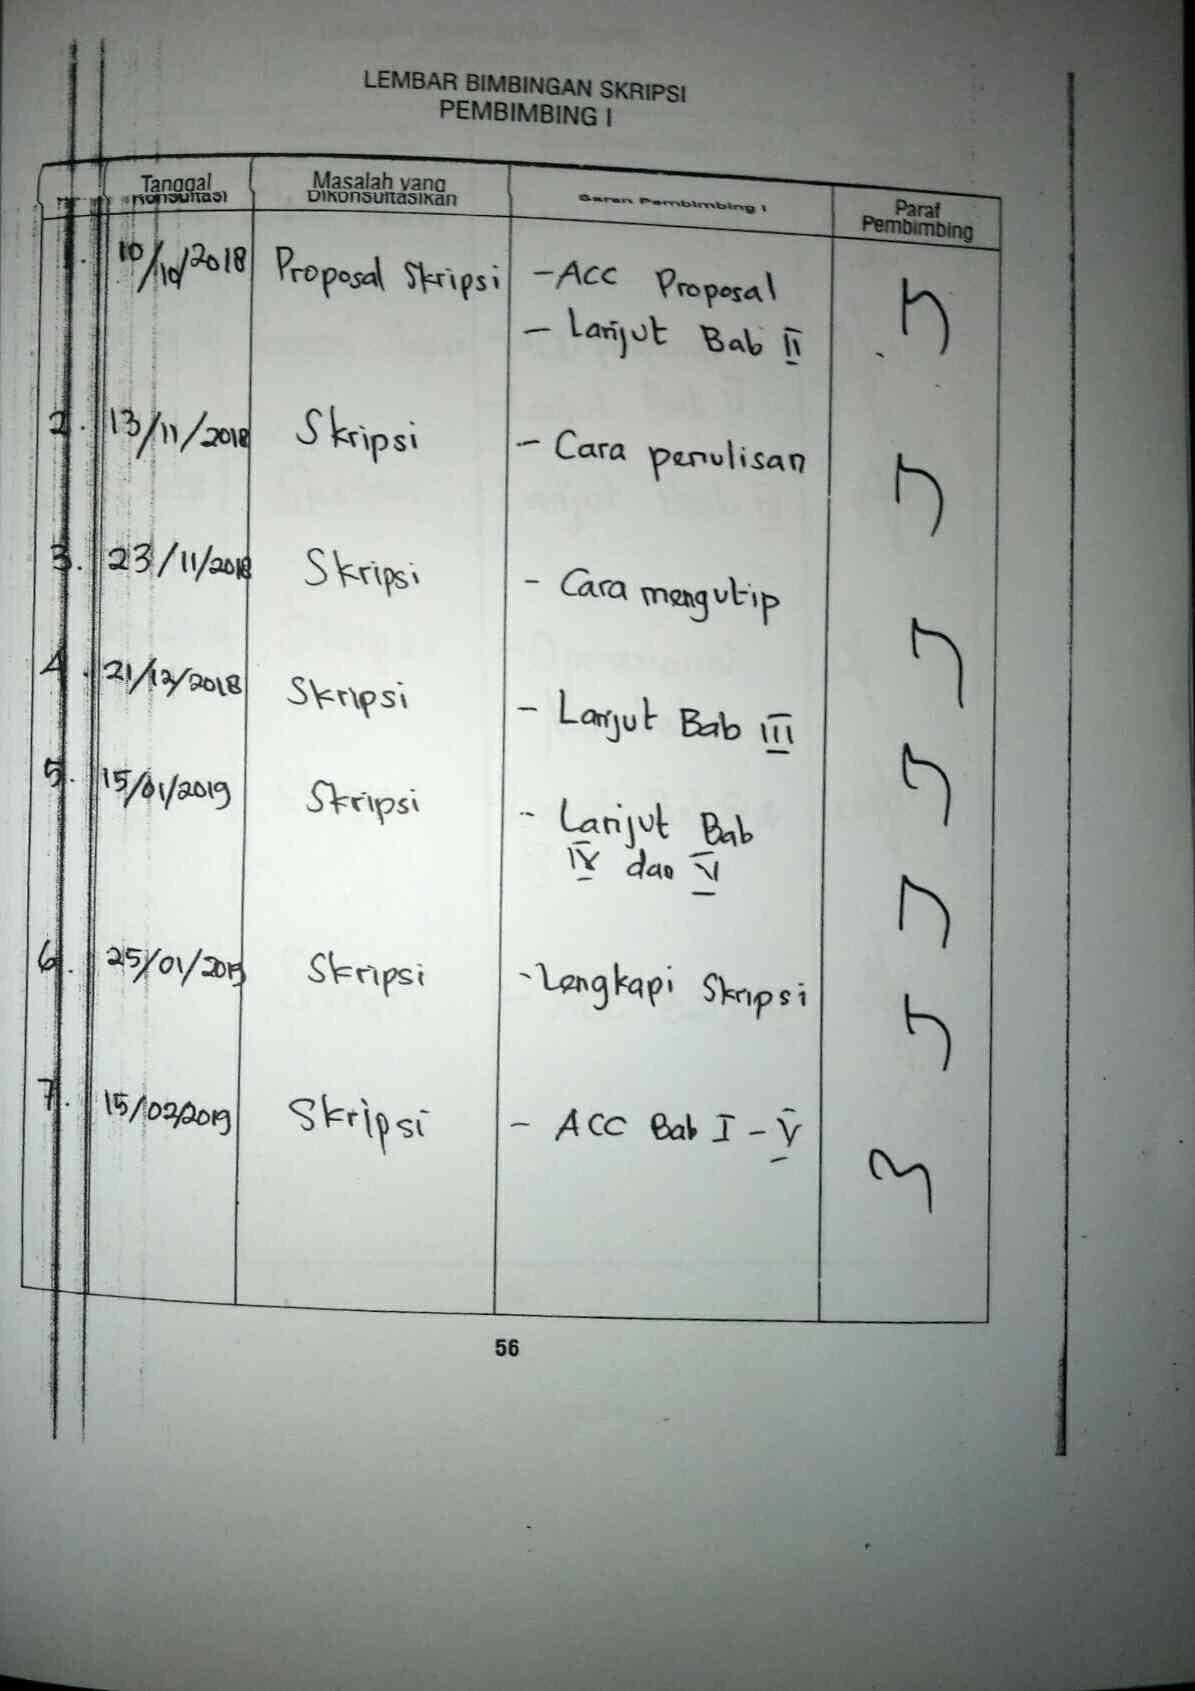 LEMBAR BIMBINGAN SKRIPSI
PEMBIMBING I
Tanggal Konsultasi
Masalah yang Dikonsultasikan
Saran Pembimbing I
Paraf Pembimbing
10/10/2018 Proposal Skripsi - ACC Proposal
- Lanjut Bab II
2. 13/11/2018 Skripsi - Cara penulisan
3. 23/11/2018 Skripsi - Cara mengutip
4. 21/12/2018 Skripsi - Lanjut Bab III
5. 15/01/2019 Skripsi - Lanjut Bab
IV dan V
6. 25/01/2019 Skripsi - Lengkapi Skripsi
7. 15/02/2019 Skripsi - ACC Bab I - V
56